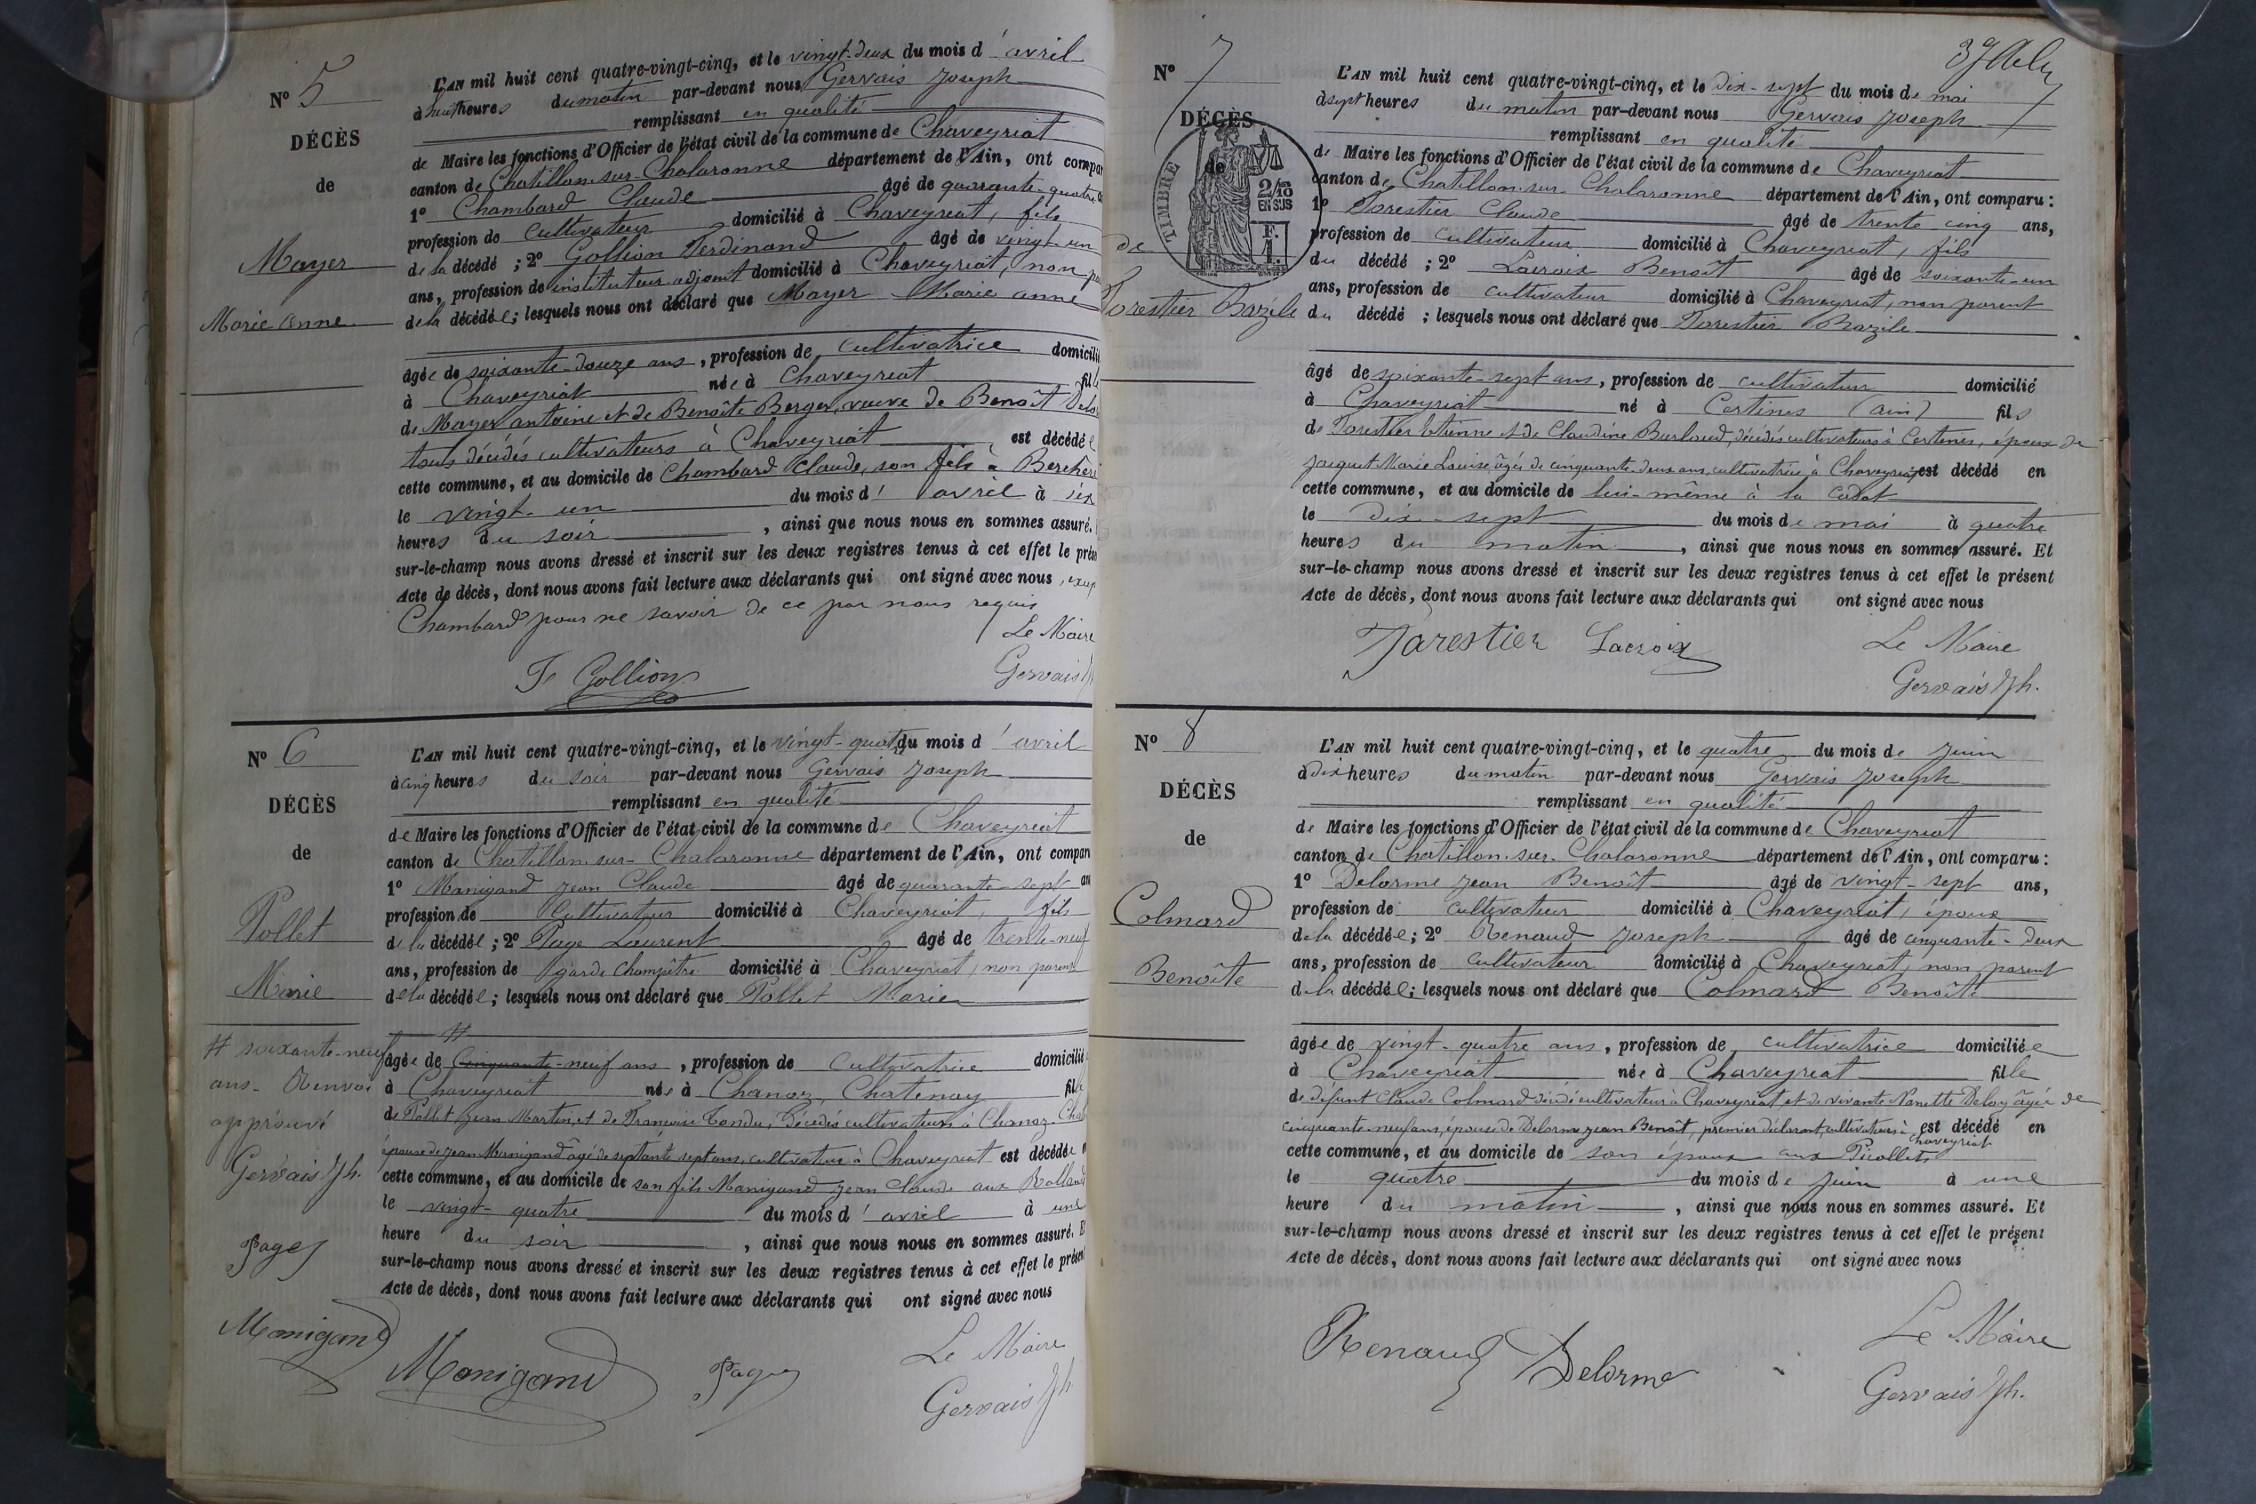 N° 5
DÉCÈS
de
Mayer
Marie Anne
L'AN mil huit cent quatre-vingt-cinq, et le vingt-deux du mois d'avril
à huit heures du matin par-devant nous Gervais Joseph
remplissant en qualité
de Maire les fonctions d'Officier de l'état civil de la commune de Chaveyriat
canton de Chatillon-sur-Chalaronne département de l'Ain, ont compar
1° Chambard Claude âgé de quarante-quatre
profession de cultivateur domicilié à Chaveyriat, fils
de la décédé ; 2° Gollion Ferdinand âgé de vingt-un
ans, profession de instituteur adjoint domicilié à Chaveyriat, non
de la décédée ; lesquels nous ont déclaré que Mayer Marie Anne
âgée de soixante-douze ans, profession de cultivatrice domicili
à Chaveyriat née à Chaveyriat fille
de Mayer Antoine et de Benoîte Berger, veuve de Benoît
tous décédés cultivateurs à Chaveyriat est décédée
cette commune, et au domicile de Chambard Claude, son fils à
le vingt-un du mois d'avril à six
heures du soir, ainsi que nous nous en sommes assuré.
sur-le-champ nous avons dressé et inscrit sur les deux registres tenus à cet effet le prés
Acte de décès, dont nous avons fait lecture aux déclarants qui ont signé avec nous,
Chambard pour ne savoir de ce par nous requis
Le Maire
F Gollion
Gervais
N° 6
DÉCÈS
de
Pollet
Marie
# soixante-neuf
ans - Renvoi
approuvé
Gervais Jh.
Page
Manigand
L'AN mil huit cent quatre-vingt-cinq, et le vingt-quatre du mois d'avril
à cinq heures du soir par-devant nous Gervais Joseph
remplissant en qualité
de Maire les fonctions d'Officier de l'état civil de la commune de Chaveyriat
canton de Chatillon-sur-Chalaronne département de l'Ain, ont compar
1° Manigand Jean Claude âgé de quarante-sept an
profession de cultivateur domicilié à Chaveyriat, fils
de la décédée ; 2° Page Laurent âgé de trente-neuf
ans, profession de garde champêtre domicilié à Chaveyriat, non parent
de la décédée ; lesquels nous ont déclaré que Pollet Marie
#
âgée de cinquante-neuf ans, profession de cultivatrice domicilié
à Chaveyriat née à Chanoz Chatenay fille
de Pollet Jean Martin et de Françoise Tondu, décédés cultivateurs à Chanoz
épouse de Jean Manigand âgé de septante sept ans, cultivateur à Chaveyriat est décédée
cette commune, et au domicile de son fils Manigand Jean Claude aux
le vingt-quatre du mois d'avril à une
heure du soir, ainsi que nous nous en sommes assuré. E
sur-le-champ nous avons dressé et inscrit sur les deux registres tenus à cet effet le présen
Acte de décès, dont nous avons fait lecture aux déclarants qui ont signé avec nous
Manigand Page
Le Maire
Gervais Jh
N° 7
DÉCÈS
de
TIMBRE
2/10 EN SUS
F. 1.
de
Forestier Bazile
L'AN mil huit cent quatre-vingt-cinq, et le dix-sept du mois de mai
à sept heures du matin par-devant nous Gervais Joseph
remplissant en qualité
de Maire les fonctions d'Officier de l'état civil de la commune de Chaveyriat
canton de Chatillon-sur-Chalaronne département de l'Ain, ont comparu :
1° Forestier Claude âgé de trente cinq ans,
profession de cultivateur domicilié à Chaveyriat, fils
du décédé ; 2° Lacroix Benoît âgé de soixante-un
ans, profession de cultivateur domicilié à Chaveyriat, non parent
du décédé ; lesquels nous ont déclaré que Forestier Bazile
âgé de soixante-sept ans, profession de cultivateur domicilié
à Chaveyriat né à Certines (Ain) fils
de Forestier Etienne et de Claudine Burlaud, décédés cultivateurs à Certines, époux de
Jacquet Marie Louise âgée de cinquante-deux ans, cultivatrice à Chaveyriat est décédé en
cette commune, et au domicile de lui-même à la
le dix-sept du mois de mai à quatre
heures du matin, ainsi que nous nous en sommes assuré. Et
sur-le-champ nous avons dressé et inscrit sur les deux registres tenus à cet effet le présent
Acte de décès, dont nous avons fait lecture aux déclarants qui ont signé avec nous
Forestier Lacroix Le Maire
Gervais Jh.
N° 8
DÉCÈS
de
Colmard
Benoîte
L'AN mil huit cent quatre-vingt-cinq, et le quatre du mois de juin
à dix heures du matin par-devant nous Gervais Joseph
remplissant en qualité
de Maire les fonctions d'Officier de l'état civil de la commune de Chaveyriat
canton de Chatillon-sur-Chalaronne département de l'Ain, ont comparu :
1° Delorme Jean Benoît âgé de vingt-sept ans,
profession de cultivateur domicilié à Chaveyriat, époux
de la décédée ; 2° Renaud Joseph âgé de cinquante-deux
ans, profession de cultivateur domicilié à Chaveyriat, non parent
de la décédée ; lesquels nous ont déclaré que Colmard Benoîte
âgée de vingt-quatre ans, profession de cultivatrice domiciliée
à Chaveyriat née à Chaveyriat fille
de défunt Claude Colmard décédé cultivateur à Chaveyriat et de vivante Nanette Delay âgée de
cinquante-neuf ans, épouse de Delorme Jean Benoît, premier déclarant, cultivateurs à Chaveyriat est décédé en
cette commune, et au domicile de son époux aux Picollets
le quatre du mois de juin à une
heure du matin, ainsi que nous nous en sommes assuré. Et
sur-le-champ nous avons dressé et inscrit sur les deux registres tenus à cet effet le présent
Acte de décès, dont nous avons fait lecture aux déclarants qui ont signé avec nous
Renaud Delorme Le Maire
Gervais Jh.